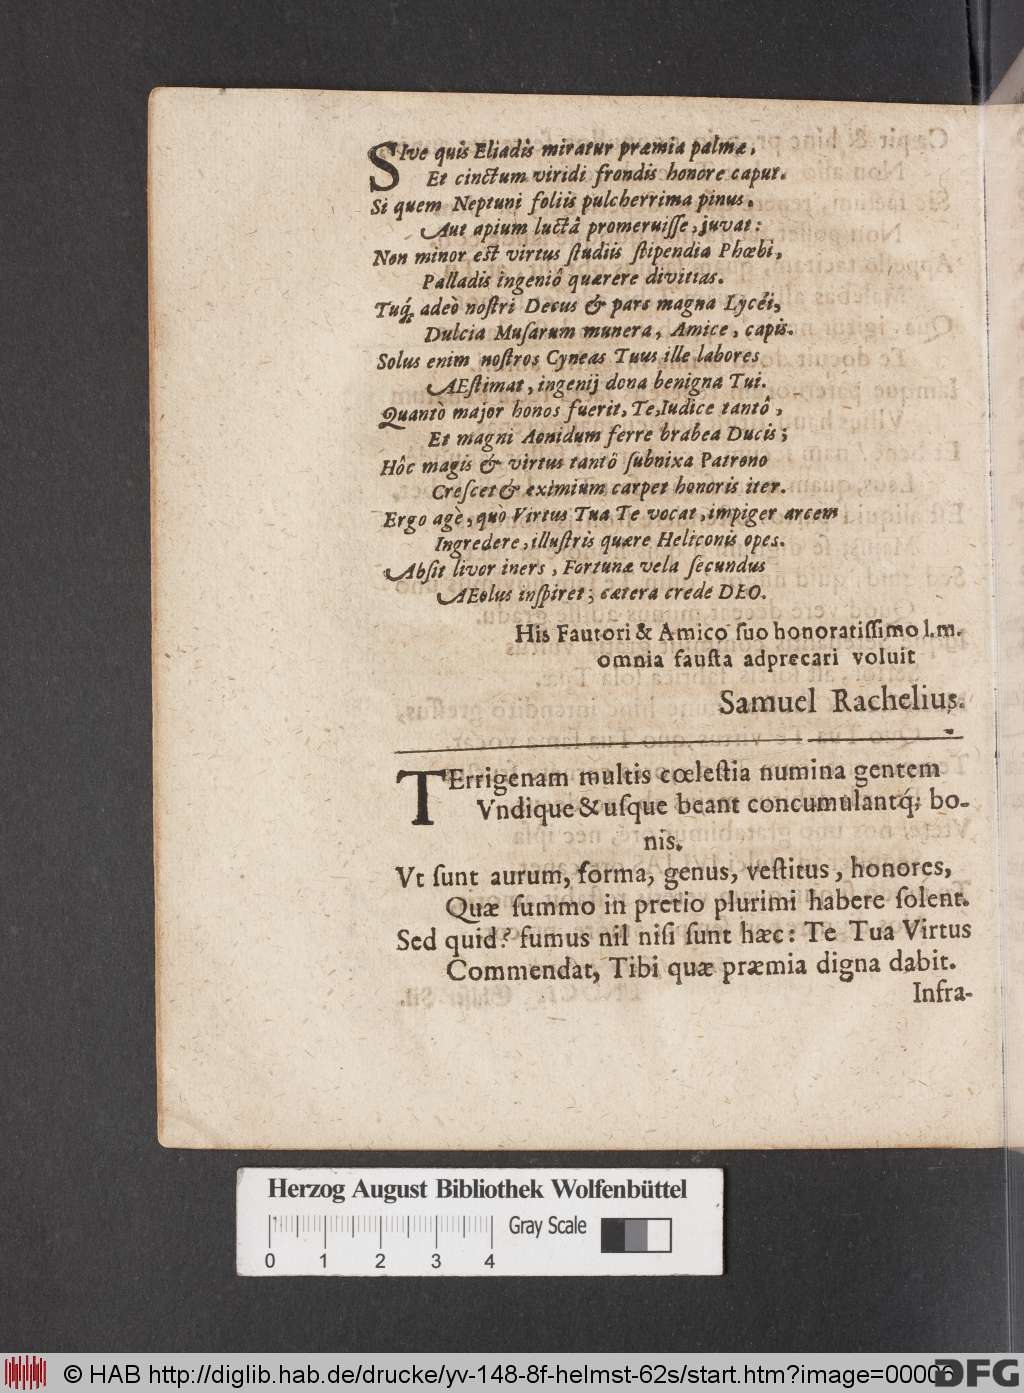 SIve quis Eliadis miratur præmia palmæ,
Et cinctum viridi frondis honore caput.
Si quem Neptuni foliis pulcherrima pinus,
Aut apium luctâ promeruiſſe, juvat:
Non minor eſt virtus ſtudiis ſtipendia Phœbi,
Palladis ingeniô quærere divitias.
Tuq́; adeò noſtri Decus & pars magna Lycéi,
Dulcia Muſarum munera, Amice, capis.
Solus enim noſtros Cyneas Tuus ille labores
AEſtimat, ingenij dona benigna Tui.
Quantò major honos fuerit, Te, Iudice tantô,
Et magni Aonidum ferre brabea Ducis;
Hôc magis & virtus tantô ſubnixa Patrono
Creſcet & eximium carpet honoris iter.
Ergo agè, quò Virtus Tua Te vocat, impiger arcem
Ingredere, illuſtris quære Heliconis opes.
Abſit livor iners, Fortunæ vela ſecundus
AEolus inſpiret; cætera crede DEO.
His Fautori & Amico ſuo honoratiſſimo l.m.
omnia fauſta adprecari voluit
Samuel Rachelius.
TErrigenam multis cœleſtia numina gentem
Vndique & uſque beant concumulantq́; bo-
nis.
Vt ſunt aurum, forma, genus, veſtitus, honores,
Quæ ſummo in pretio plurimi habere ſolent.
Sed quid? fumus nil niſi ſunt hæc: Te Tua Virtus
Commendat, Tibi quæ præmia digna dabit.
Infra-
Herzog August Bibliothek Wolfenbüttel
Gray Scale
0 1 2 3 4
© HAB http://diglib.hab.de/drucke/yv-148-8f-helmst-62s/start.htm?image=00009
DFG